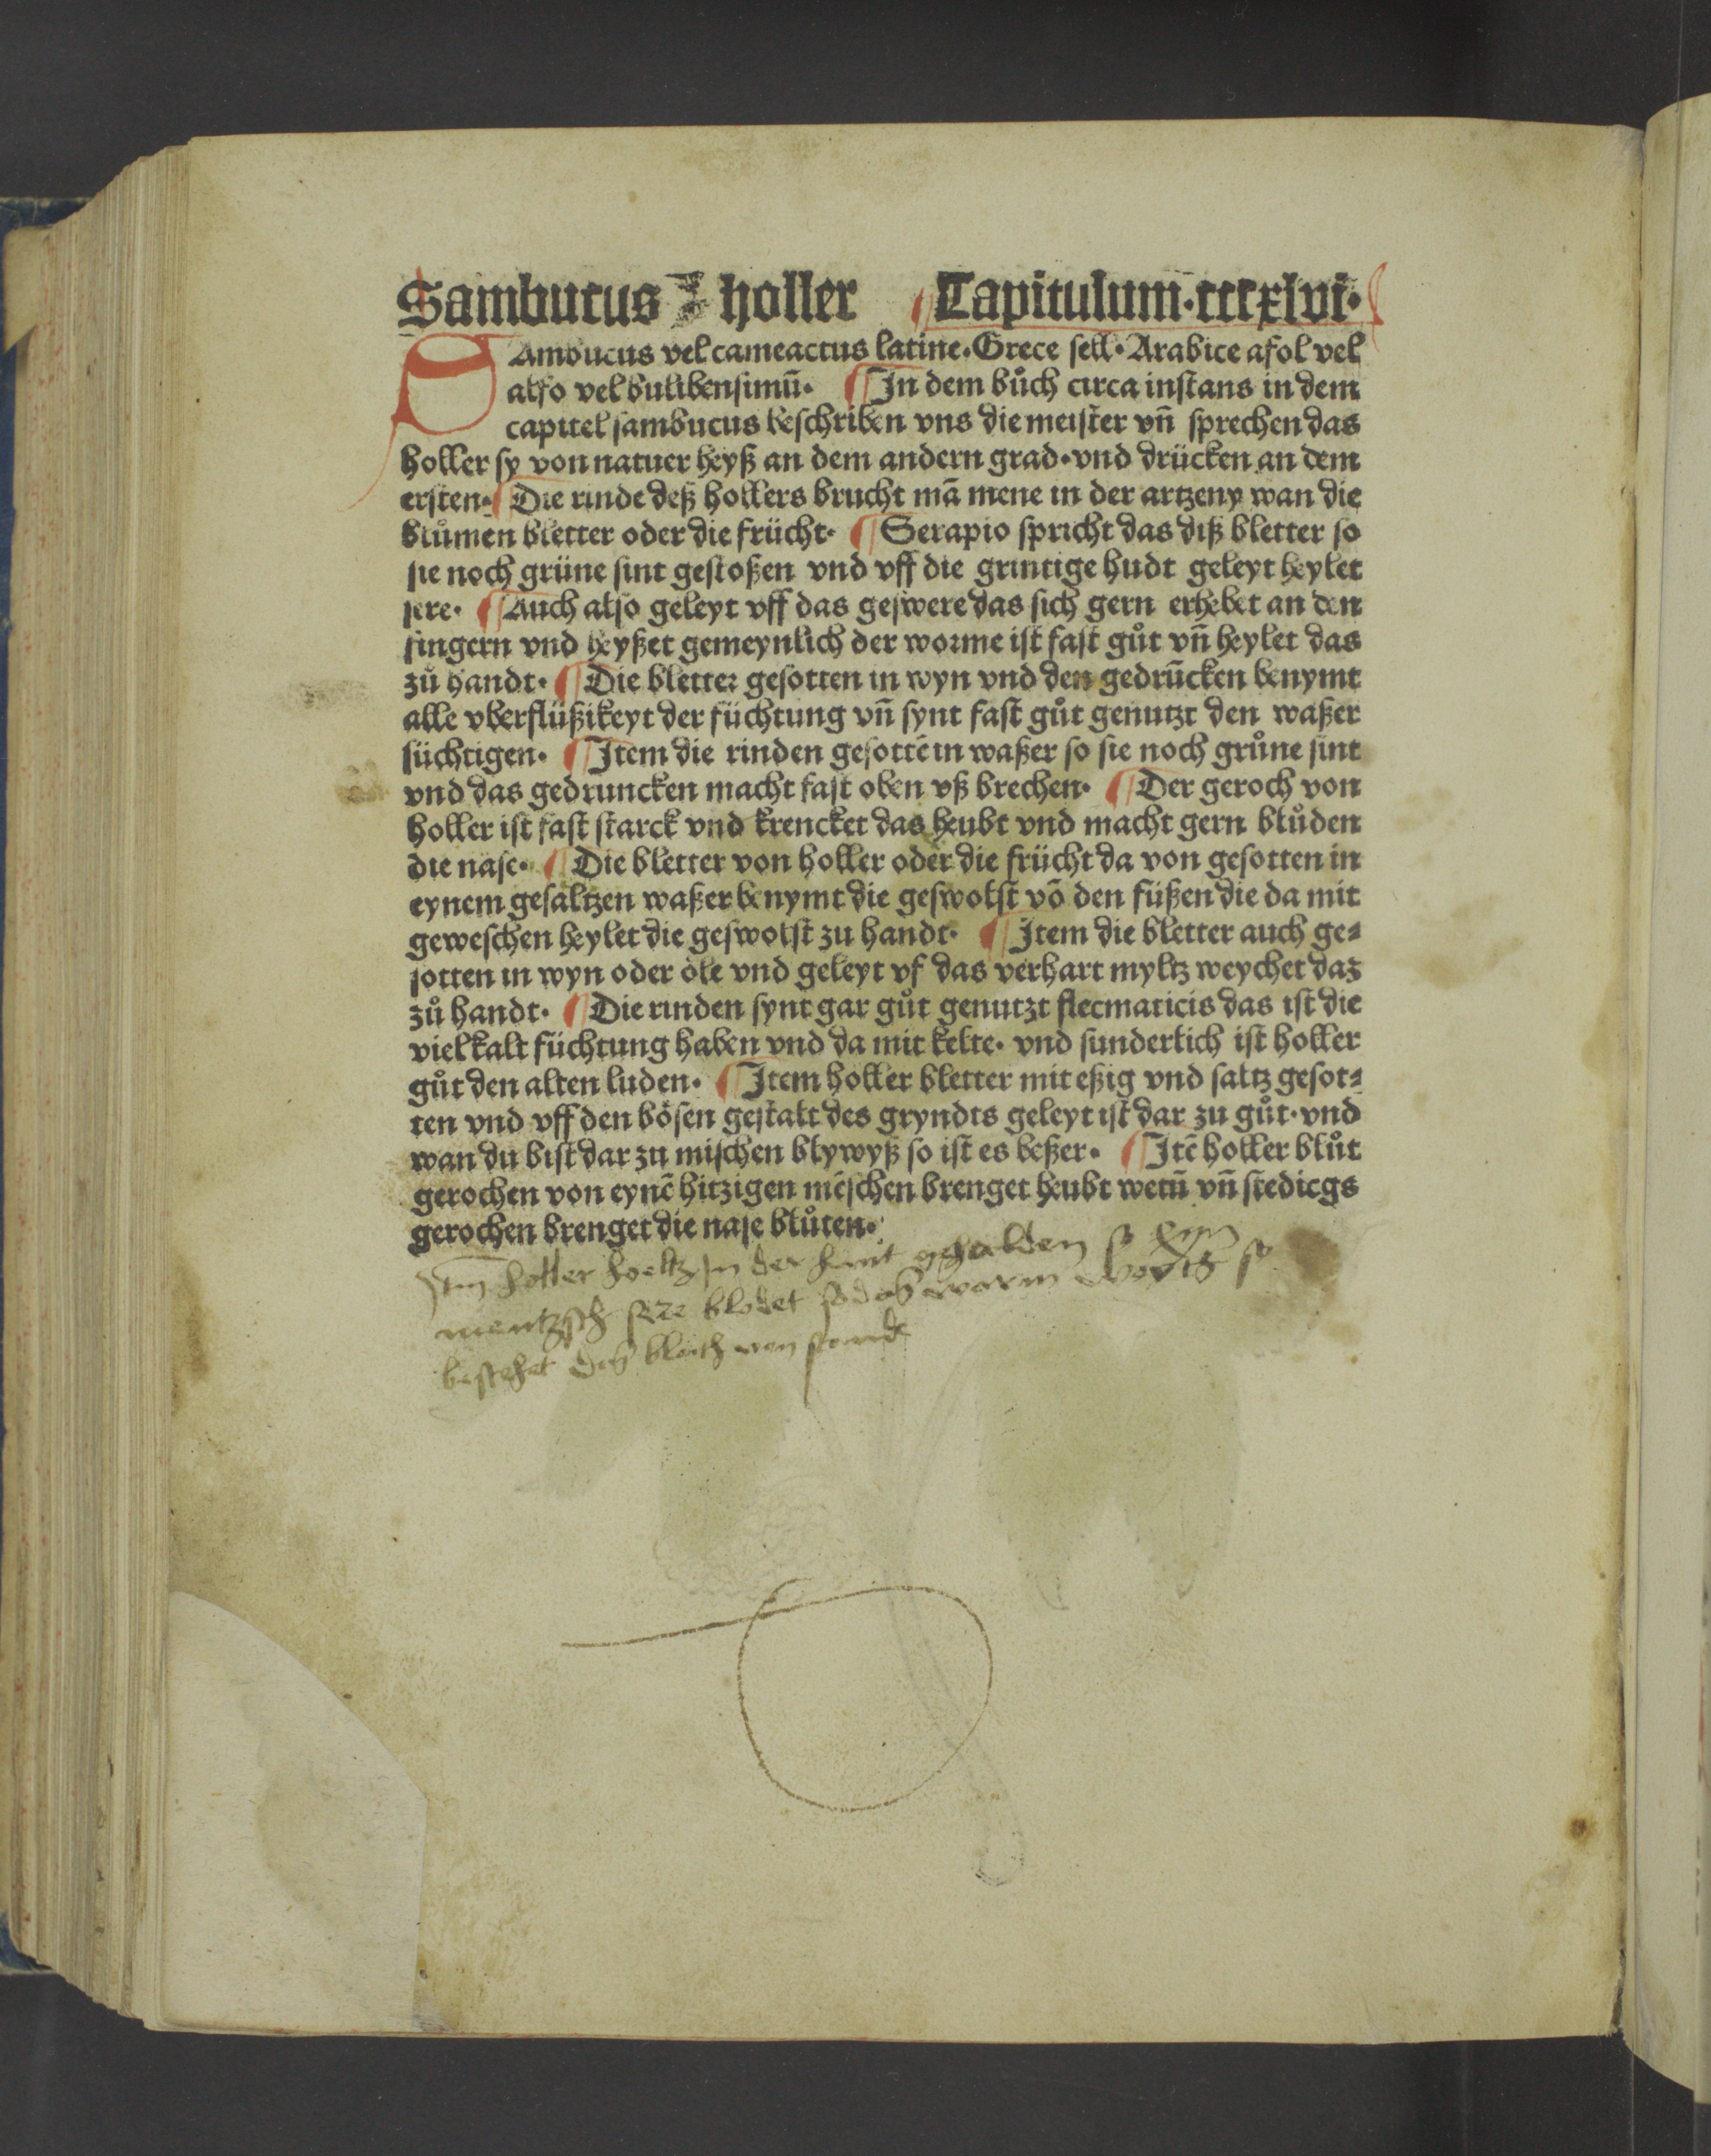 Sambucus holler Capitulum·cccxlvi·
SAmbucus vel cameactus latine·Grece sell·Arabice asol vel
also vel bulibensimū· ¶ In dem bůch circa instans in dem
capitel sambucus beschriben vns die meister vn̄ sprechen das
holler sy von natuer heyß an dem andern grad·vnd drücken an dem
ersten·¶ Die rinde deß hollers brucht mā mene in der artzeny wan die
blůmen bletter oder die frücht· ¶ Serapio spricht das diß bletter so
sie noch grüne sint gestoßen vnd vff die grintige hudt geleyt heylet
sere· ¶ Auch also geleyt vff das geswere das sich gern erhebet an den
fingern vnd heyßet gemeynlich der worme ist fast gůt vn̄ heylet das
zů handt· ¶ Die bletter gesotten in wyn vnd den gedrūcken benymt
alle vberflüßikeyt der füchtung vn̄ synt fast gůt genutzt den waßer
süchtigen· ¶ Item die rinden gesottē in waßer so sie noch grůne sint
vnd das gedruncken macht fast oben vß brechen· ¶ Der geroch von
holler ist fast starck vnd krencket das heubt vnd macht gern blůden
die nase· ¶ Die bletter von holler oder die frücht da von gesotten in
eynem gesaltzen waßer benymt die geswolst vō den füßen die da mit
geweschen heylet die geswolst zu handt· ¶ Item die bletter auch ge⸗
sotten in wyn oder öle vnd geleyt vf das verhart myltz weychet daz
zů handt· ¶ Die rinden synt gar gůt genutzt flecmaticis das ist die
viel kalt füchtung haben vnd da mit kelte· vnd sunderlich ist holler
gůt den alten luden· ¶ Item holler bletter mit eßig vnd saltz gesot⸗
ten vnd vff den bösen gestalt des gryndts geleyt ist dar zu gůt·vnd
wan du bist dar zu mischen blywyß so ist es beßer· ¶ Itē holler blůt
gerochen von eynē hitzigen mēschen brenget heubt wetū vn̄ stedicgs
gerochen brenget die nase blůten·
Itm holler holtz In der hant gehalden so eyn
mentzsch sere blodet so das warm so
bestehet das bloith von stunde